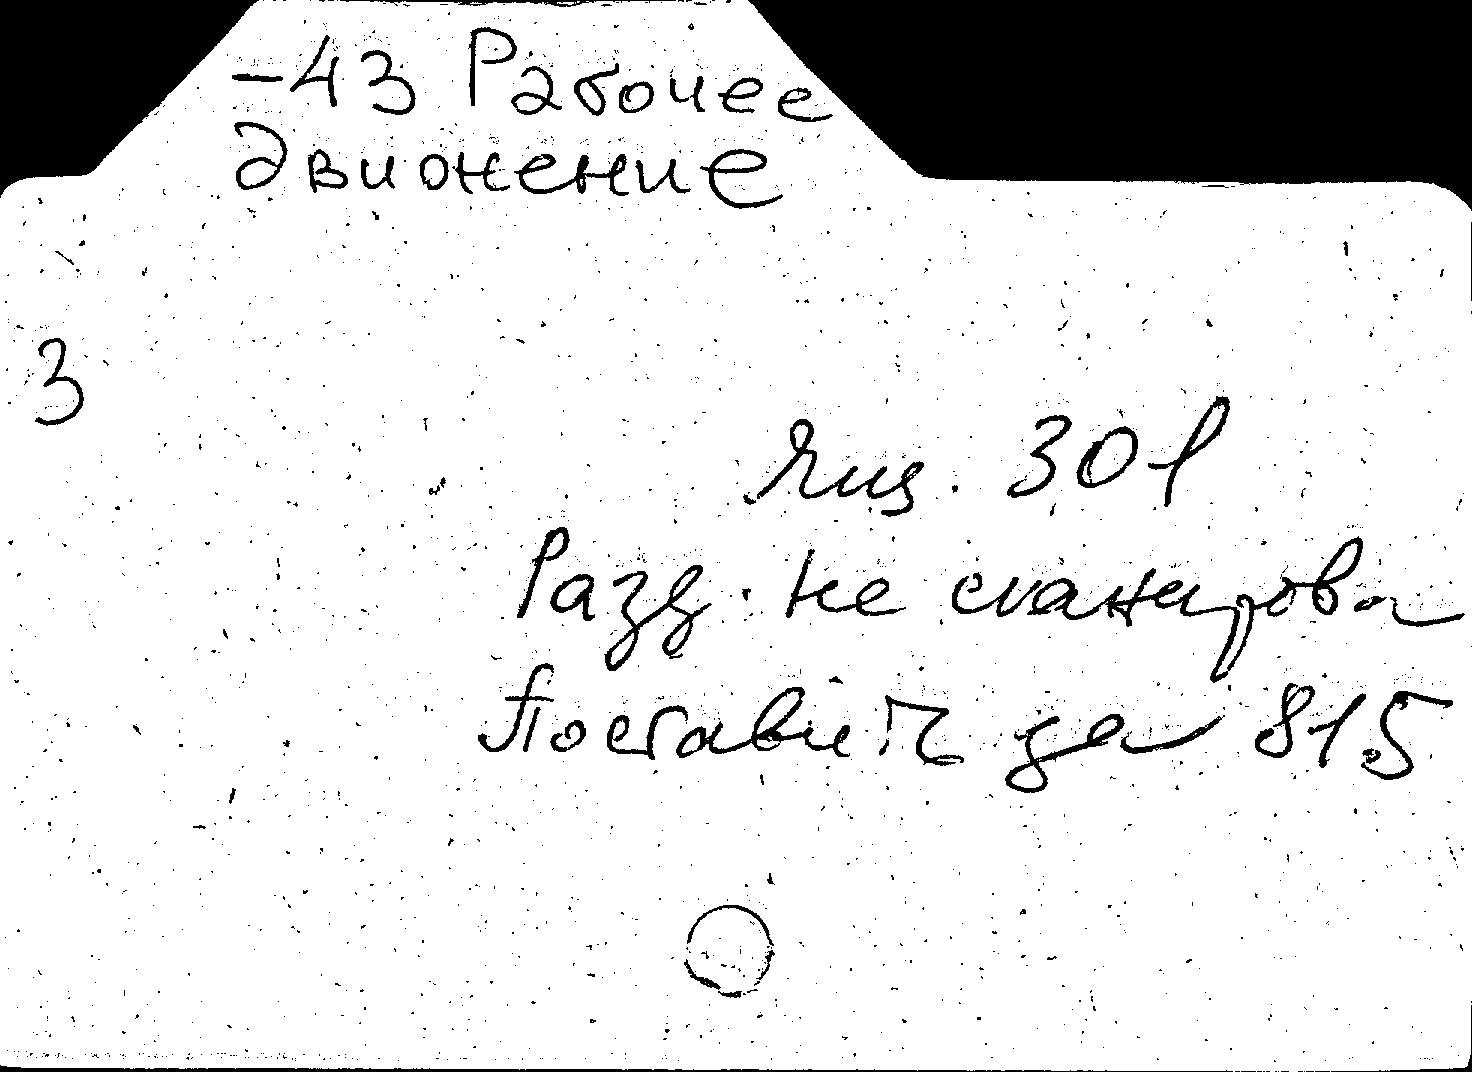 -43 Рабочее
движение
3
Ящ. 301
Разд. не сканирова
Поставить за 815